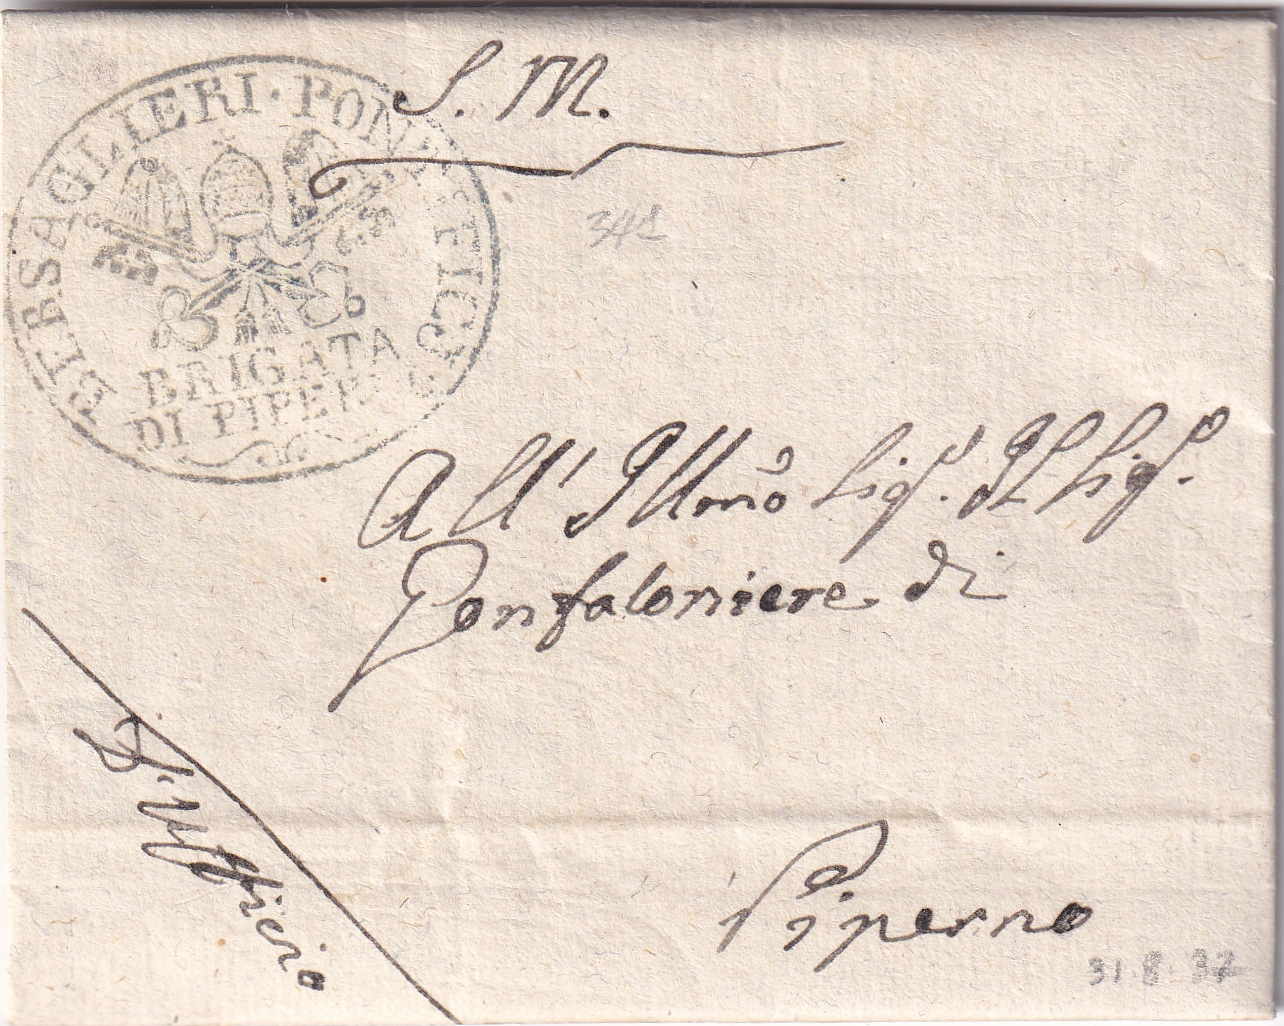 S. M.
BERSAGLIERI · PONTIFICJ
BRIGATA
DI PIPERNO
All' Illmo Sig.r Il Sig.r
Gonfaloniere di
Piperno
D'Uffizio
31 8 37